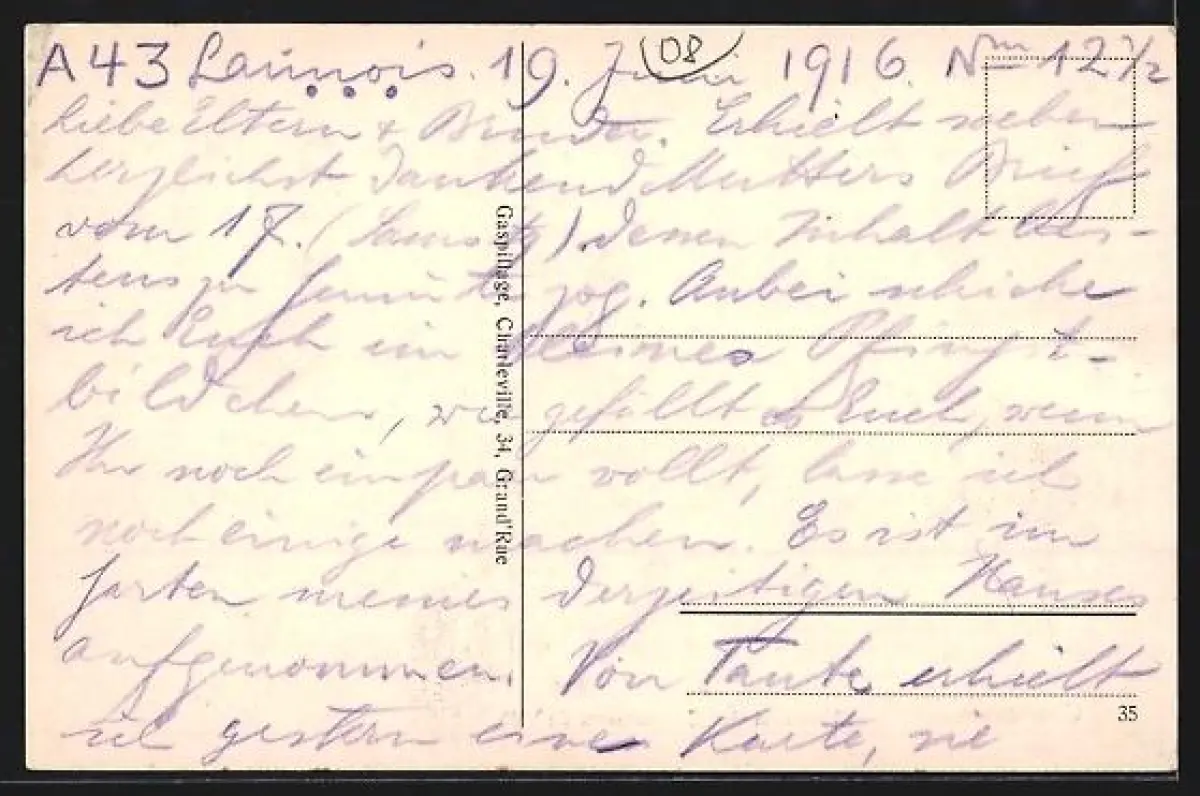 A43 Launois. 19. Juni 1916. Nm 12 1/2
08
Liebe Eltern & Bruder. Erhielt soeben
herzlichst dankend Mutters Brief
vom 17. (Samstg) denen Inhalt bes-
tens zu gemüte zog. Anbei schicke
ich Euch ein kleines Pfingst-
bildchen, wie gefällt es Euch, wenn
Ihr noch ein paar wollt, lasse ich
noch einige machen. Es ist im
Garten meines derzeitigen Hauses
aufgenommen. Von Tante erhielt
ich gestern eine Karte, sie
Gaspillage, Charleville, 34, Grand'Rue
35